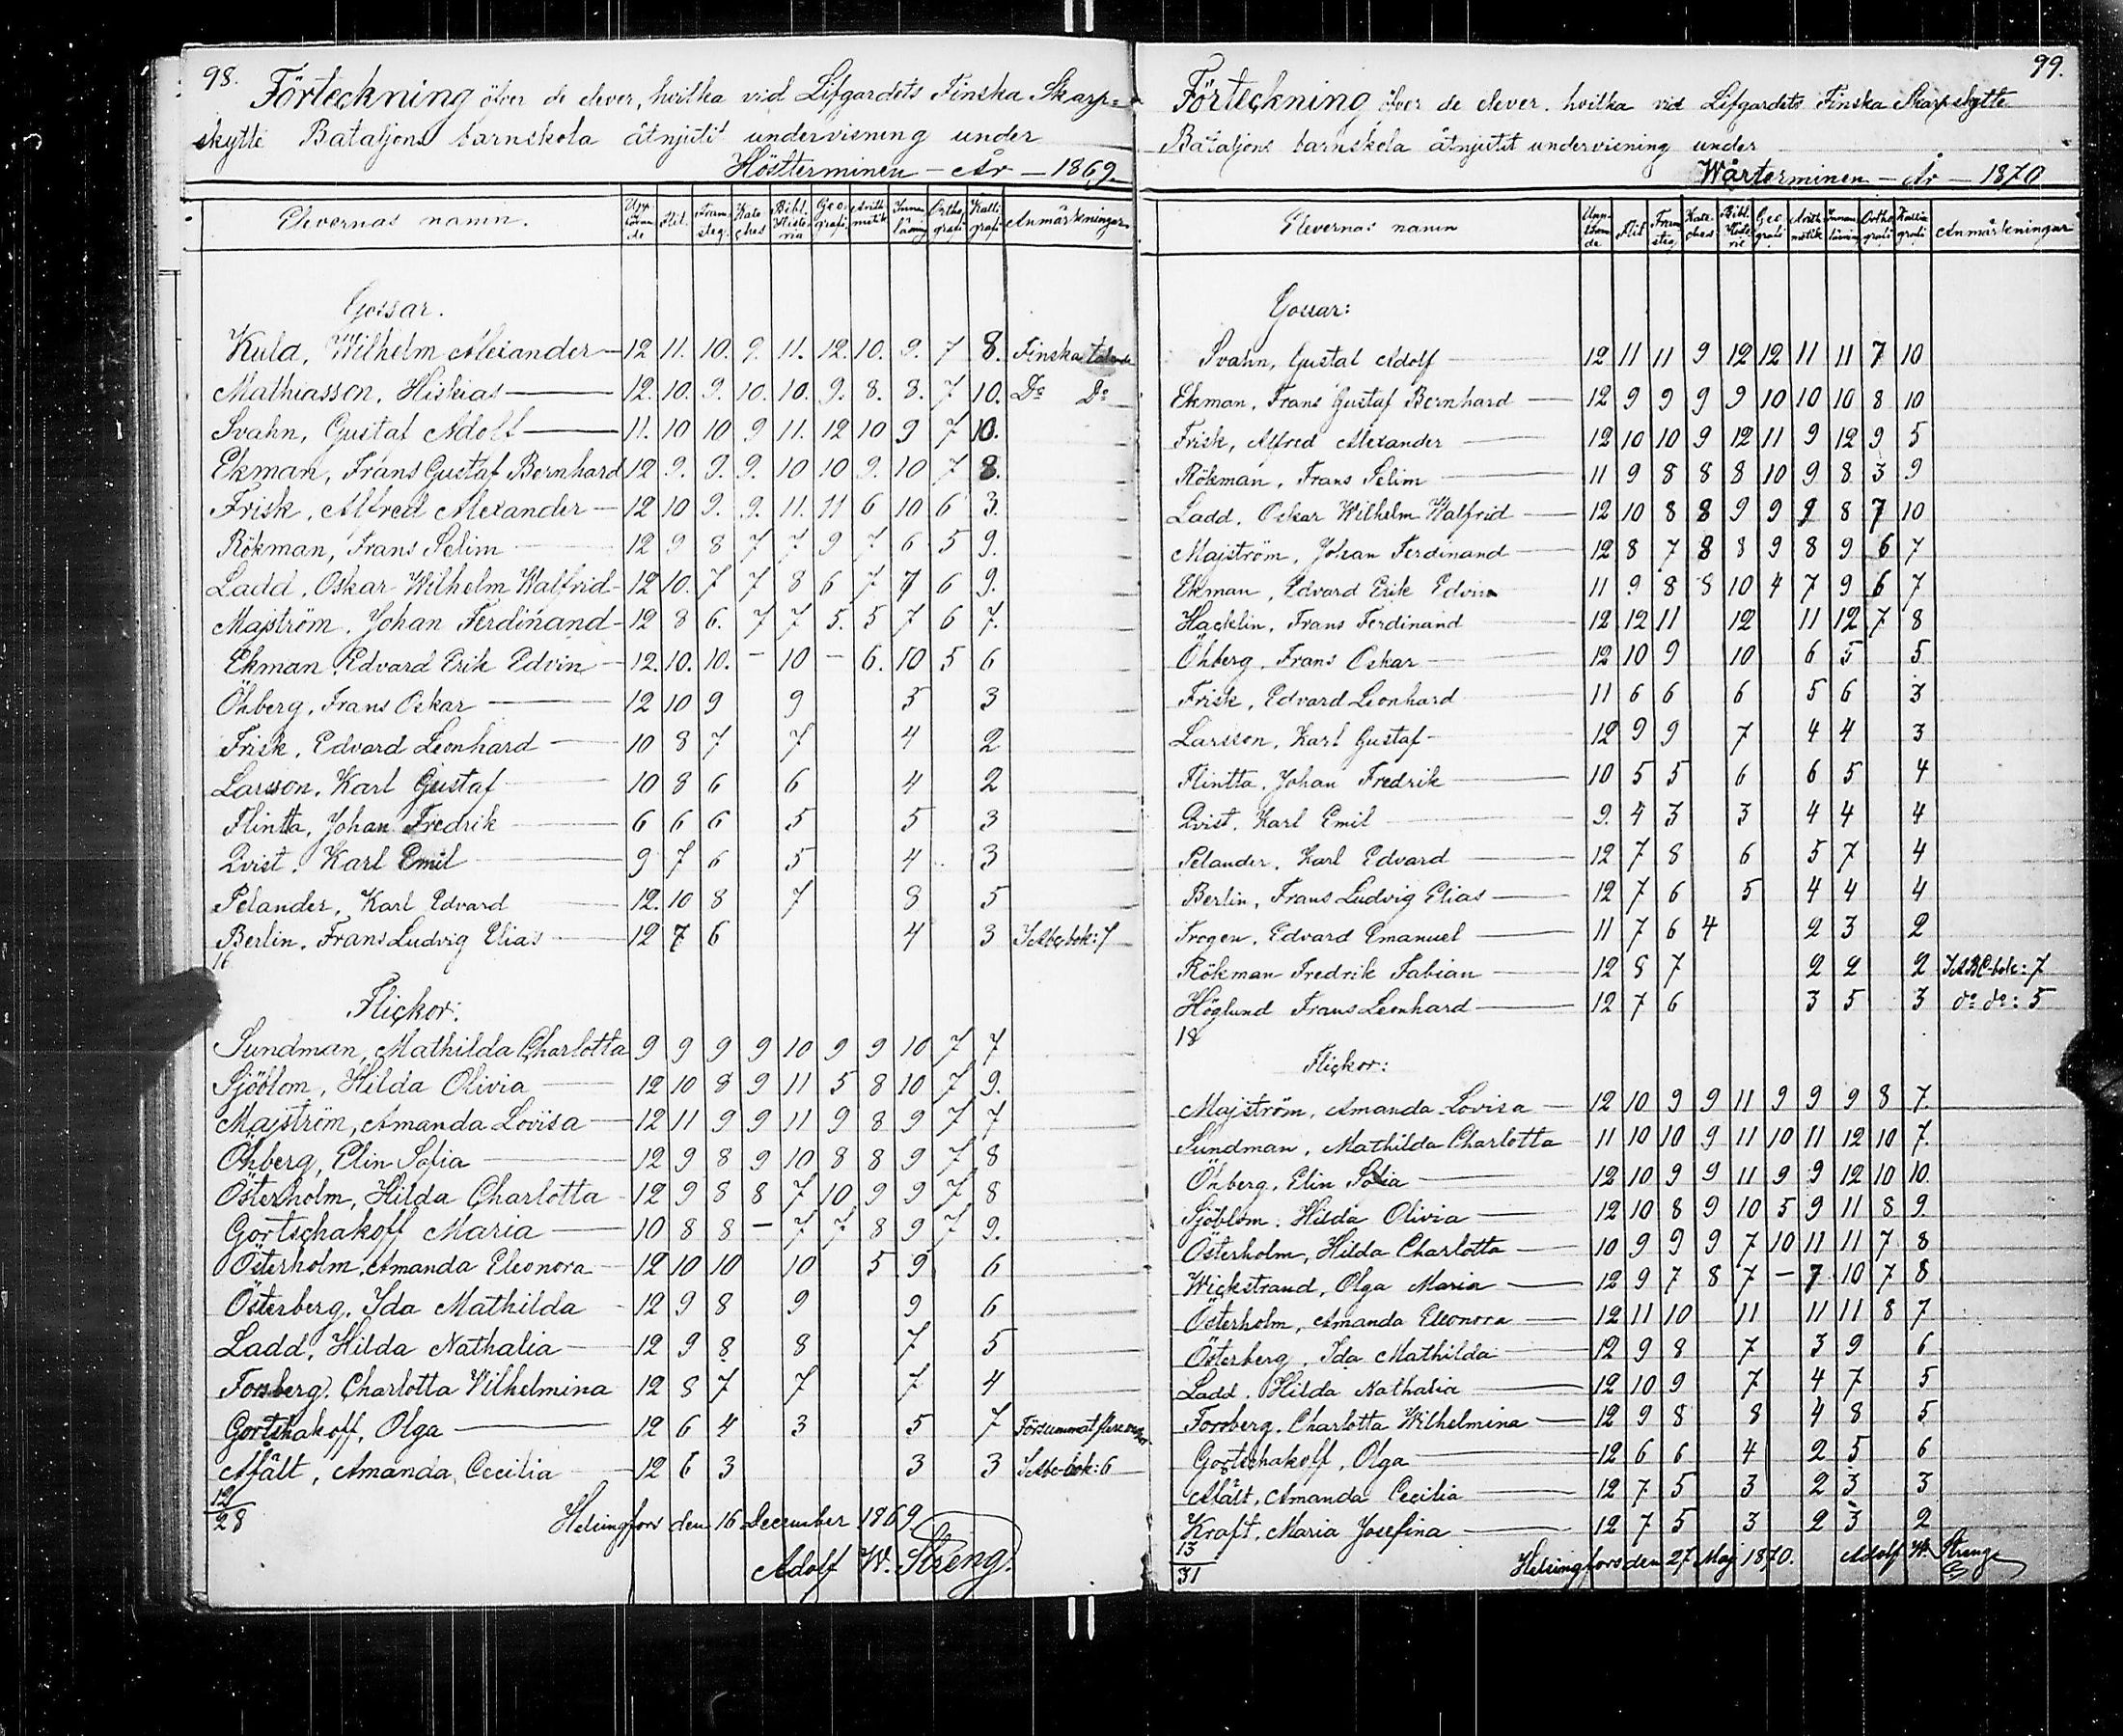 98.
Förteckning öfver de elever, hvilka vid Lifgardets Finska Skarp=
skytte Bataljons barnskola åtnjutit undervisning under
Höstterminen – År – 1869.
Elevernas namn. Upp föran de Flit. Fram steg. Kate ches Bibl. Histo ria Geo grafi. Arith metik Innan läsning Ortho grafi Kalli grafi Anmärkningar
Gossar.
Kuld, Wilhelm Alexander 12 11. 10. 9. 11. 12. 10. 9. 7 8. Finska talande
Mathiasson, Hiskias 12. 10. 9. 10. 10. 9. 8. 8. 7 10. Do Do
Svahn, Gustaf Adolf 11. 10 10 9 11. 12 10 9 7 10.
Ekman, Frans Gustaf Bernhard 12 9. 9. 9. 10 10 9. 10 7 8.
Frisk, Alfred Alexander 12 10 9. 9. 11. 11 6 10 6 3.
Rökman, Frans Selim 12 9 8 7 7 9 7 6 5 9.
Ladd, Oskar Wilhelm Walfrid 12 10. 7 7 8 6 7 7 6 9.
Majström, Johan Ferdinand 12 8 6. 7 7 5. 5 7 6 7.
Ekman, Edvard Erik Edvin 12. 10. 10. – 10 – 6. 10 5 6
Öhberg, Frans Oskar 12 10 9 9 5 3
Frisk, Edvard Leonhard 10 8 7 7 4 2
Larsson, Karl Gustaf 10 8 6 6 4 2
Flintta, Johan Fredrik 6 6 6 5 5 3
Qvist, Karl Emil 9 7 6 5 4 3
Pelander, Karl Edvard 12. 10 8 7 8 5
Berlin, Frans Ludvig Elias 12 7 6 4 3 I Abc bok: 7
16
Flickor:
Sundman, Mathilda Charlotta 9 9 9 9 10 9 9 10 7 7
Sjöblom, Hilda Olivia 12 10 8 9 11 5 8 10 7 9.
Majström, Amanda Lovisa 12 11 9 9 11 9 8 9 7 7
Öhberg, Elin Sofia 12 9 8 9 10 8 8 9 7 8
Österholm, Hilda Charlotta 12 9 8 8 7 10 9 9 7 8
Gortschakoff Maria 10 8 8 – 7 7 8 9 7 9.
Österholm, Amanda Eleonora 12 10 10 10 5 9 6
Österberg, Ida Mathilda 12 9 8 9 9 6
Ladd, Hilda Nathalia 12 9 8 8 7 5
Forsberg, Charlotta Vilhelmina 12 8 7 7 7 4
Gortschakoff, Olga 12 6 4 3 5 7 Försummat flere
Afält, Amanda Cecilia 12 6 3 3 3 I Abc-bok: 6
12
28
Helsingfors den 16 December 1869
Adolf W. Streng.
99.
Förteckning öfver de elever, hvilka vid Lifgardets Finska Skarpskytte
Bataljons barnskola åtnjutit undervisning under
Wårterminen – År – 1870
Elevernas namn Upp- föran de Flit Fram steg Kate- ches Bibl. Histo rie Geo grafi Arith metik Innan läsning Ortho grafi Kalli grafi Anmärkningar
Gossar:
Svahn, Gustaf Adolf 12 11 11 9 12 12 11 11 7 10
Ekman, Frans Gustaf Bernhard 12 9 9 9 9 10 10 10 8 10
Frisk, Alfred Alexander 12 10 10 9 12 11 9 12 9 5
Rökman, Frans Selim 11 9 8 8 8 10 9 8 3 9
Ladd, Oskar Wilhelm Walfrid 12 10 8 8 9 9 9 8 7 10
Majström, Johan Ferdinand 12 8 7 8 8 9 8 9 6 7
Ekman, Edvard Erik Edvin 11 9 8 8 10 4 7 9 6 7
Hacklin, Frans Ferdinand 12 12 11 12 11 12 7 8
Öhberg, Frans Oskar 12 10 9 10 6 5 5
Frisk, Edvard Leonhard 11 6 6 6 5 6 3
Larsson, Karl Gustaf 12 9 9 7 4 4 3
Flintta, Johan Fredrik 10 5 5 6 6 5 4
Qvist, Karl Emil 9. 4 3 3 4 4 4
Pelander, Karl Edvard 12 7 8 6 5 7 4
Berlin, Frans Ludvig Elias 12 7 6 5 4 4 4
Frogen, Edvard Emanuel 11 7 6 4 2 3 2
Rökman Fredrik Fabian 12 8 7 2 2 2 I ABC-bok: 7
Höglund Frans Leonhard 12 7 6 3 5 3 do do: 5
18
Flickor:
Majström, Amanda Lovisa 12 10 9 9 11 9 9 9 8 7.
Sundman, Mathilda Charlotta 11 10 10 9 11 10 11 12 10 7.
Öhberg, Elin Sofia 12 10 9 9 11 9 9 12 10 10.
Sjöblom, Hilda Olivia 12 10 8 9 10 5 9 11 8 9.
Österholm, Hilda Charlotta 10 9 9 9 7 10 11 11 7 8
Wickstrand, Olga Maria 12 9 7 8 7 – 7 10 7 8
Österholm, Amanda Eleonora 12 11 10 11 11 11 8 7
Österberg, Ida Mathilda 12 9 8 7 3 9 6
Ladd, Hilda Nathalia 12 10 9 7 4 7 5
Forsberg, Charlotta Wilhelmina 12 9 8 8 4 8 5
Gortschakoff, Olga 12 6 6 4 2 5 6
Afält, Amanda Cecilia 12 7 5 3 2 3 3
Kraft, Maria Josefina 12 7 5 3 2 3 2
13
31
Helsingfors den 27 Maj 1870. Adolf W. Streng